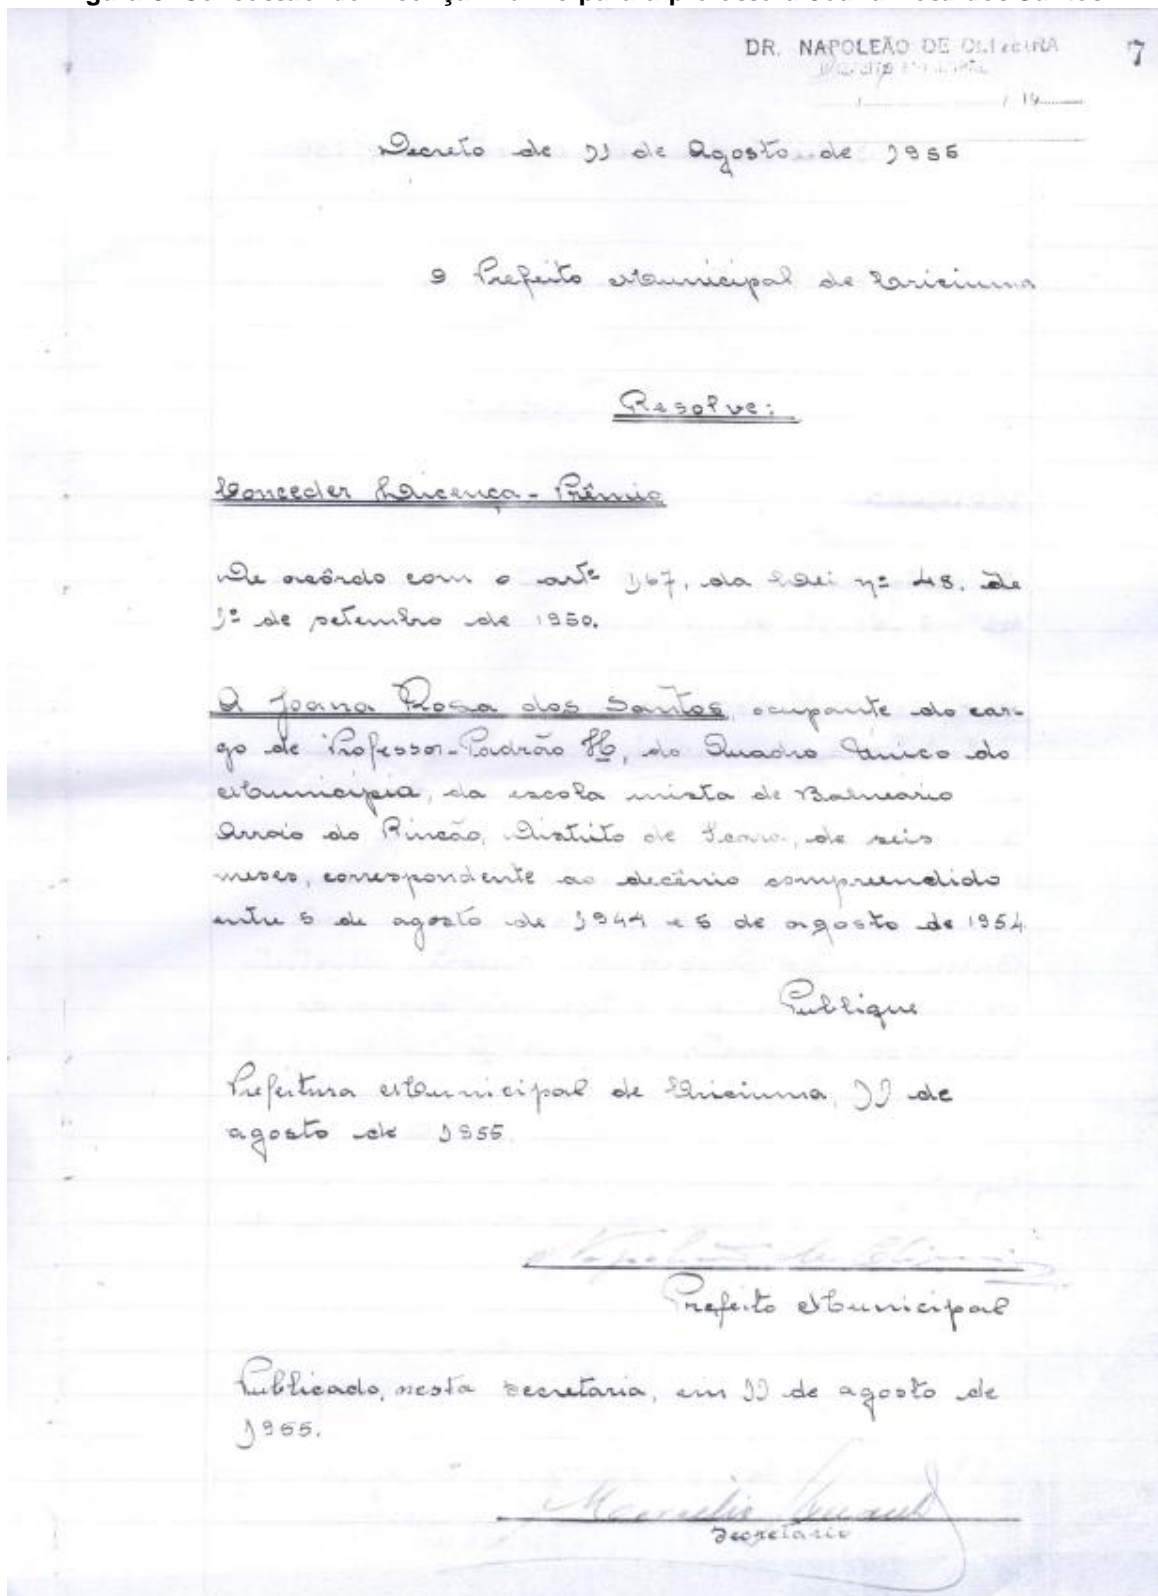 DR. NAPOLEÃO DE OLIVEIRA
7
/ 19
Decreto de 11 de Agosto de 1955
O Prefeito Municipal de Criciuma
Resolve:
Conceder Licença-Prêmio
De acôrdo com o artº 167, da Lei nº 48, de
1º de setembro de 1950.
A Joana Rosa dos Santos, ocupante do car-
go de Professor-Padrão H, do Quadro Único do
Municipio, da escola mista de Balneario
Arroio do Rincão, Distrito de Icara, de seis
meses, correspondente ao decênio compreendido
entre 5 de agosto de 1944 e 5 de agosto de 1954
Publique
Prefeitura Municipal de Criciuma, 11 de
agosto de 1955.
Napoleão de Oliveira
Prefeito Municipal
Publicado, nesta secretaria, em 11 de agosto de
1955.
Secretario